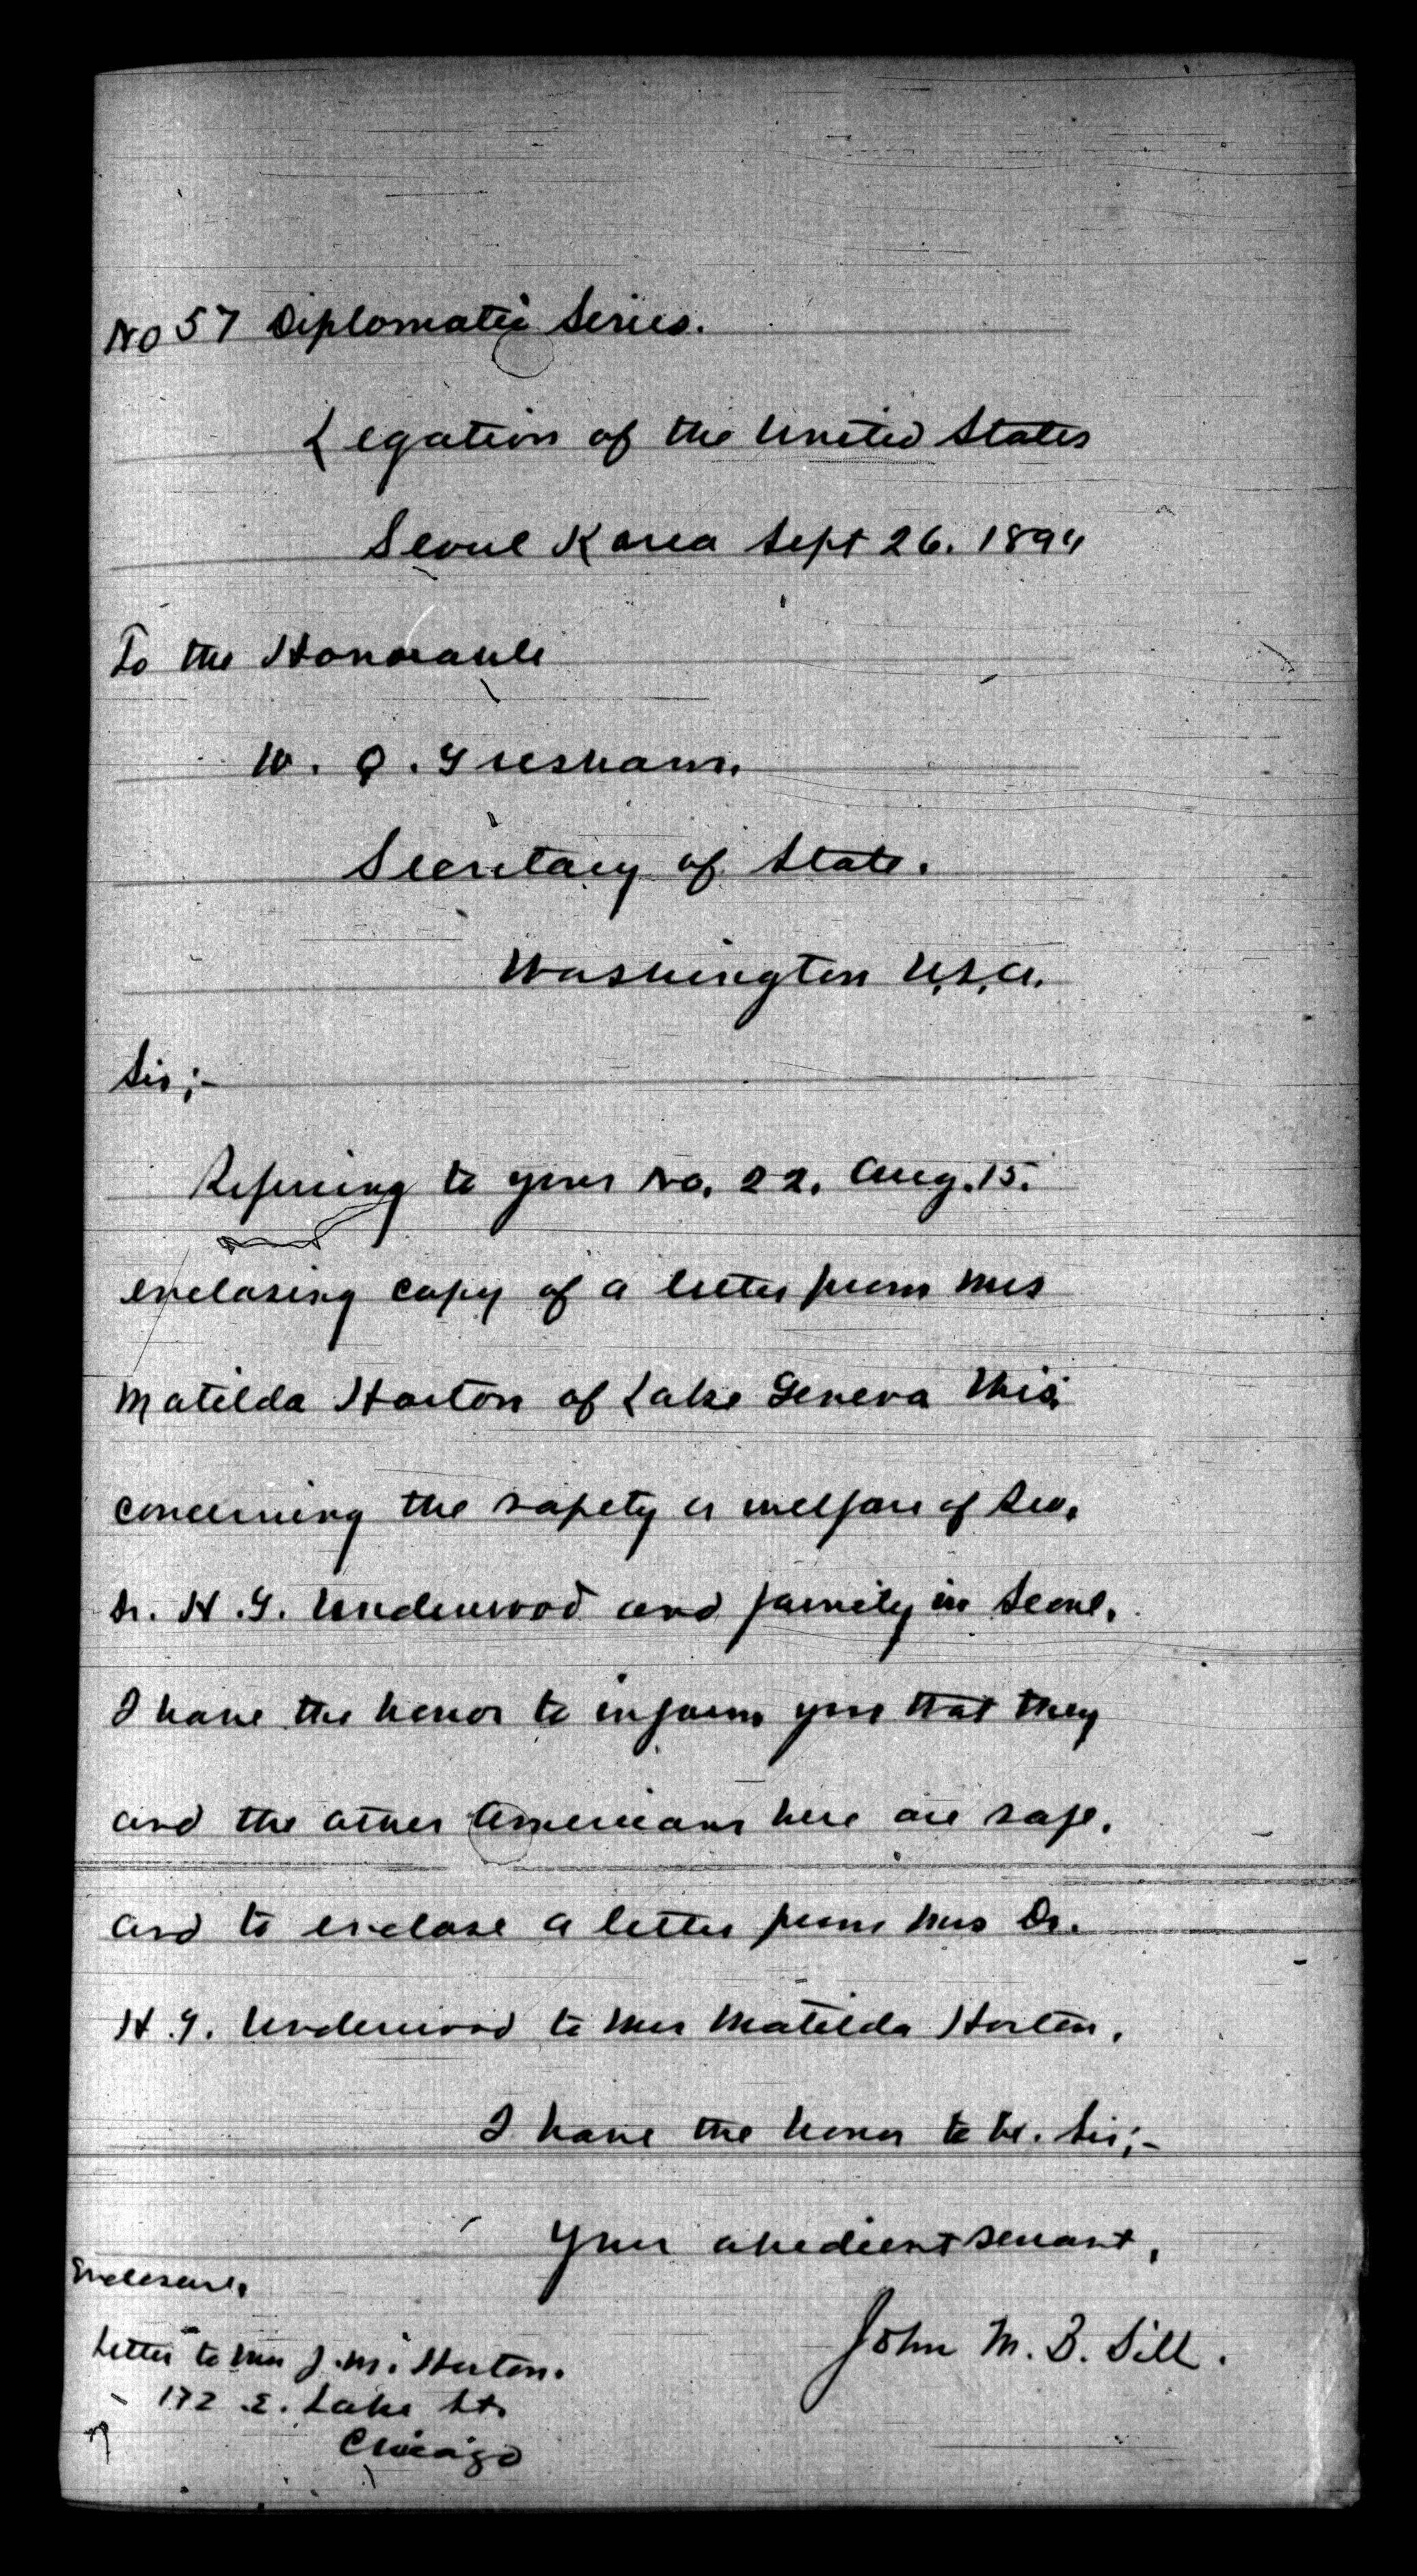 No 57 Diplomatic Series.
Legation of the United States
Seoul Korea Sept 26. 1894
To the Honorable
W. Q. Gresham.
Secretary of State.
Washington U.S.A.
Sir;-
Referring to your No. 22. Aug. 15.
enclosing copy of a letter from Mrs
Matilda Horton of Lake Geneva Wis;
concerning the safety & welfare of Rev.
Dr. H. G. Underwood and family in Seoul.
I have the honor to inform you that they
and the other Americans here are safe.
and to enclose a letter from Mrs Dr.
H. G. Underwood to Mrs Matilda Horton.
I have the honor to be. Sir;-
Your obedient servant,
John M. B. Sill.
Enclosure.
Letter to Mrs J. M. Horton.
172 E. Lake St.
Chicago